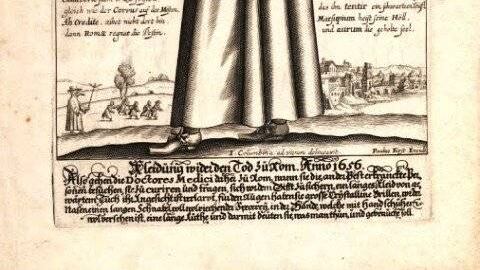 gleich wie der Corvus auf der Misten.
Ah Credite, zihet nicht dort hin
dann Romæ regnat die Pestin.
Marsupium heist seine Höll
und aurum die geholte seel.
I. Columbina ad vivum delineavit.
Paulus Fürst Excud
Kleidung wider den Tod zu Rom. Anno 1656.
Also gehen die Doctores Medici daher zu Rom, wann sie die an der Pest erkranckte Per-
sonen besuchen, sie zu curiren und tragen, sich vor dem Gifft zu sichern, ein langes Kleid von ge-
wäxtem Tuch ihr Angesicht ist verlarvt, für den Augen haben sie grosse Crystalline Brillen, wider
Nasen einen langen Schnabel voll wolriechender Specerey, in der Hände, welche mit Handschuhen
wol versehen ist, eine lange Ruthe und darmit deuten sie, was man thun, und gebrauchen soll.